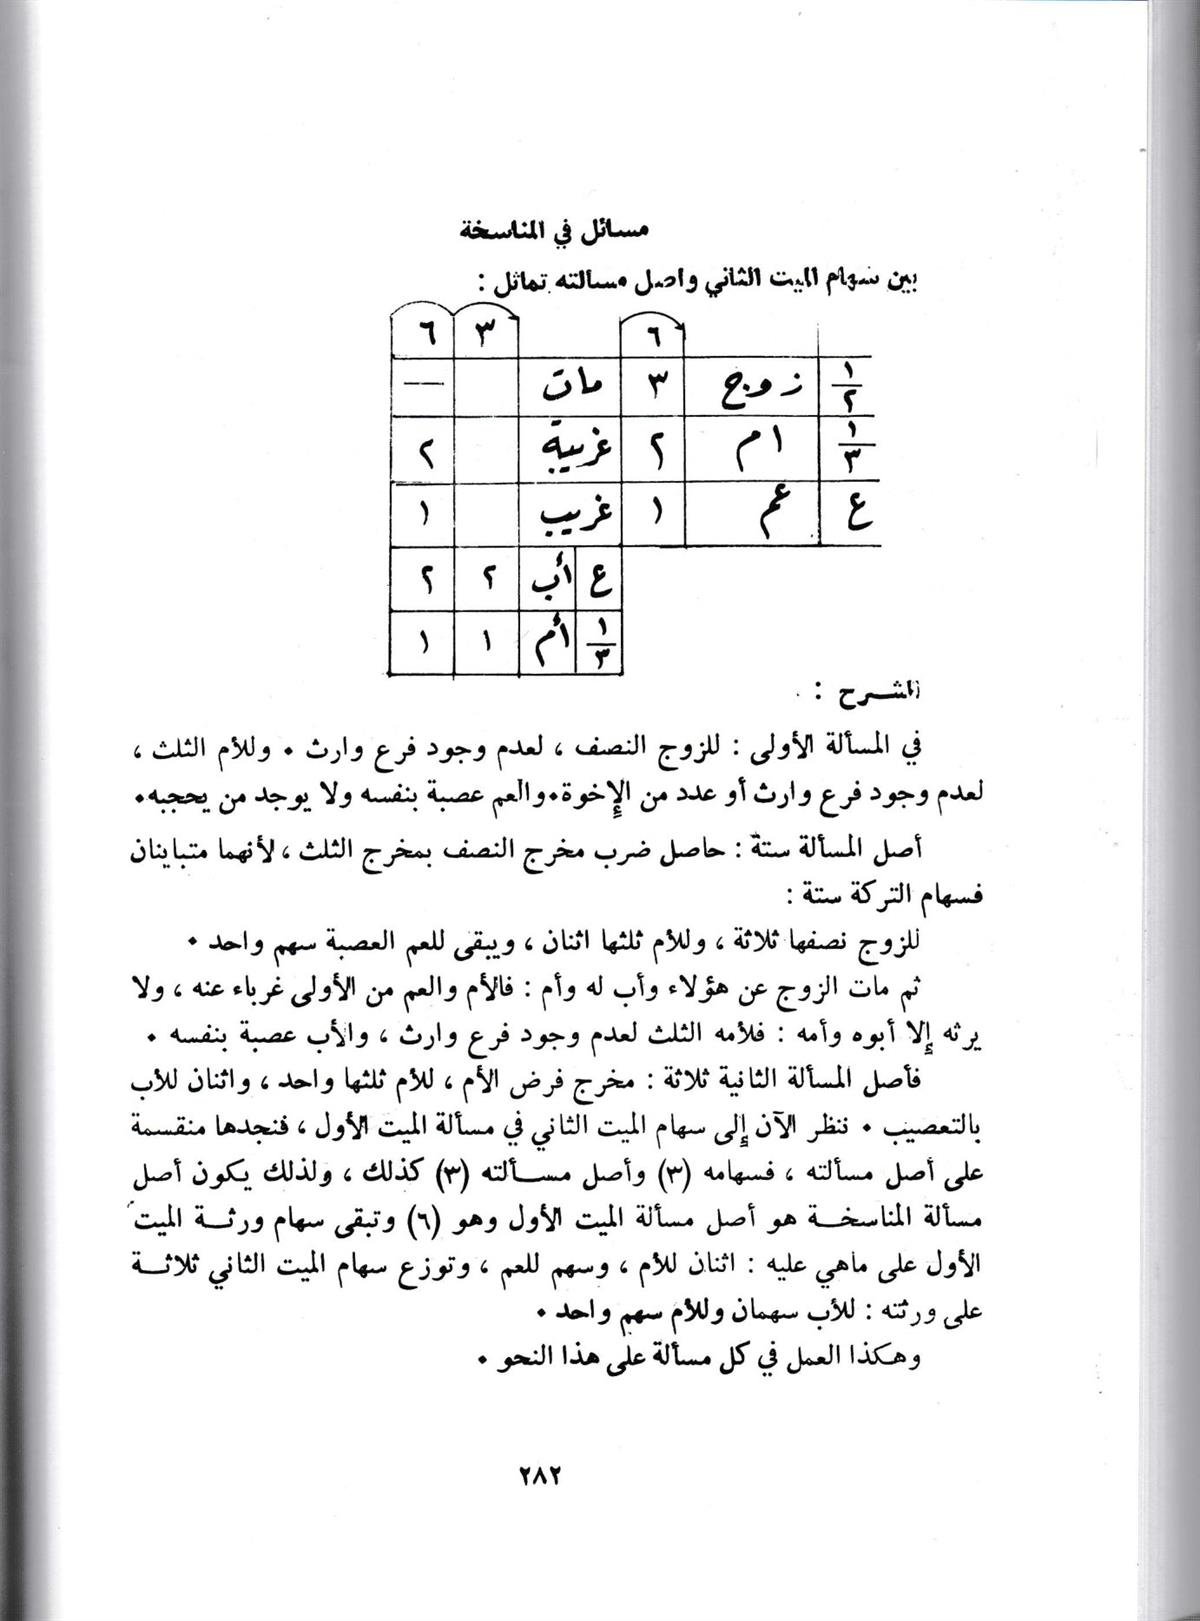 مسائل في المناسخة
بين سهام الميت الثاني واصل مسالته تماثل :
٦ ٣ ٦
١/٢ زوج ٣ مات —
١/٣ ام ٢ غريبة ٢
ع عم ١ غريب ١
ع أب ٢ ٢
١/٣ أم ١ ١
الشرح :
في المسألة الأولى : للزوج النصف ، لعدم وجود فرع وارث ٠ وللأم الثلث ،
لعدم وجود فرع وارث أو عدد من الإخوة٠والعم عصبة بنفسه ولا يوجد من يحجبه٠
أصل المسألة ستة : حاصل ضرب مخرج النصف بمخرج الثلث ، لأنهما متباينان
فسهام التركة ستة :
للزوج نصفها ثلاثة ، وللأم ثلثها اثنان ، ويبقى للعم العصبة سهم واحد ٠
ثم مات الزوج عن هؤلاء وأب له وأم : فالأم والعم من الأولى غرباء عنه ، ولا
يرثه إلا أبوه وأمه : فلأمه الثلث لعدم وجود فرع وارث ، والأب عصبة بنفسه ٠
فأصل المسألة الثانية ثلاثة : مخرج فرض الأم ، للأم ثلثها واحد ، واثنان للأب
بالتعصيب ٠ ننظر الآن إلى سهام الميت الثاني في مسألة الميت الأول ، فنجدها منقسمة
على أصل مسألته ، فسهامه (٣) وأصل مسـألته (٣) كذلك ، ولذلك يكون أصل
مسألة المناسخـة هو أصل مسألة الميت الأول وهو (٦) وتبقى سهام ورثـة الميت
الأول على ماهي عليه : اثنان للأم ، وسهم للعم ، وتوزع سهام الميت الثاني ثلاثـة
على ورثته : للأب سهمان وللأم سهم واحد ٠
وهكذا العمل في كل مسألة على هذا النحو ٠
٢٨٢